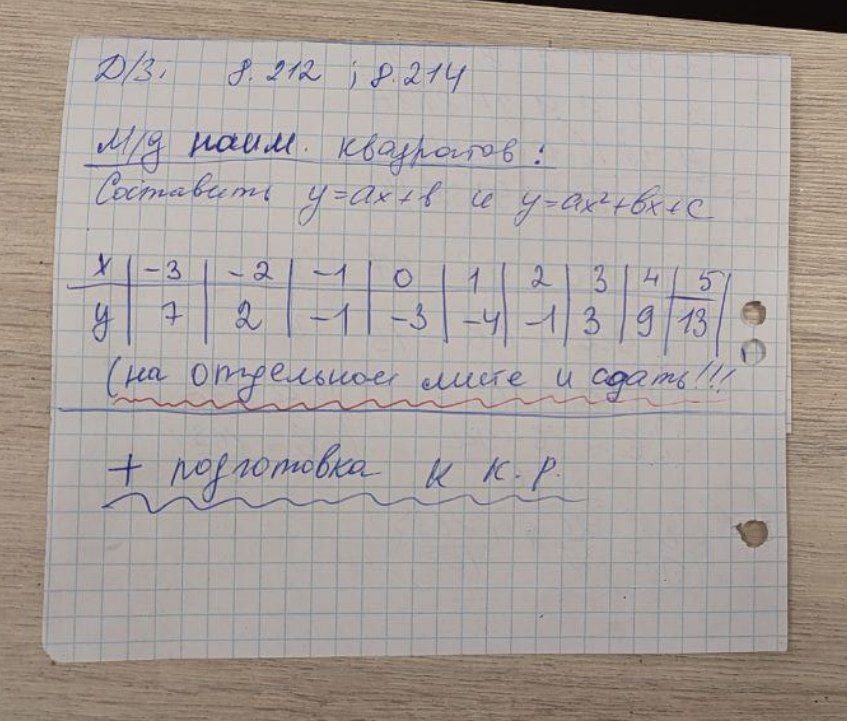 Д/З: 8.212 ; 8.214
М/д наим. квадратов:
Составить y=ax+b и y=ax²+bx+c
x | -3 | -2 | -1 | 0 | 1 | 2 | 3 | 4 | 5
y | 7 | 2 | -1 | -3 | -4 | -1 | 3 | 9 | 13
(на отдельном листе и сдать!!!
+ подготовка к К.Р.